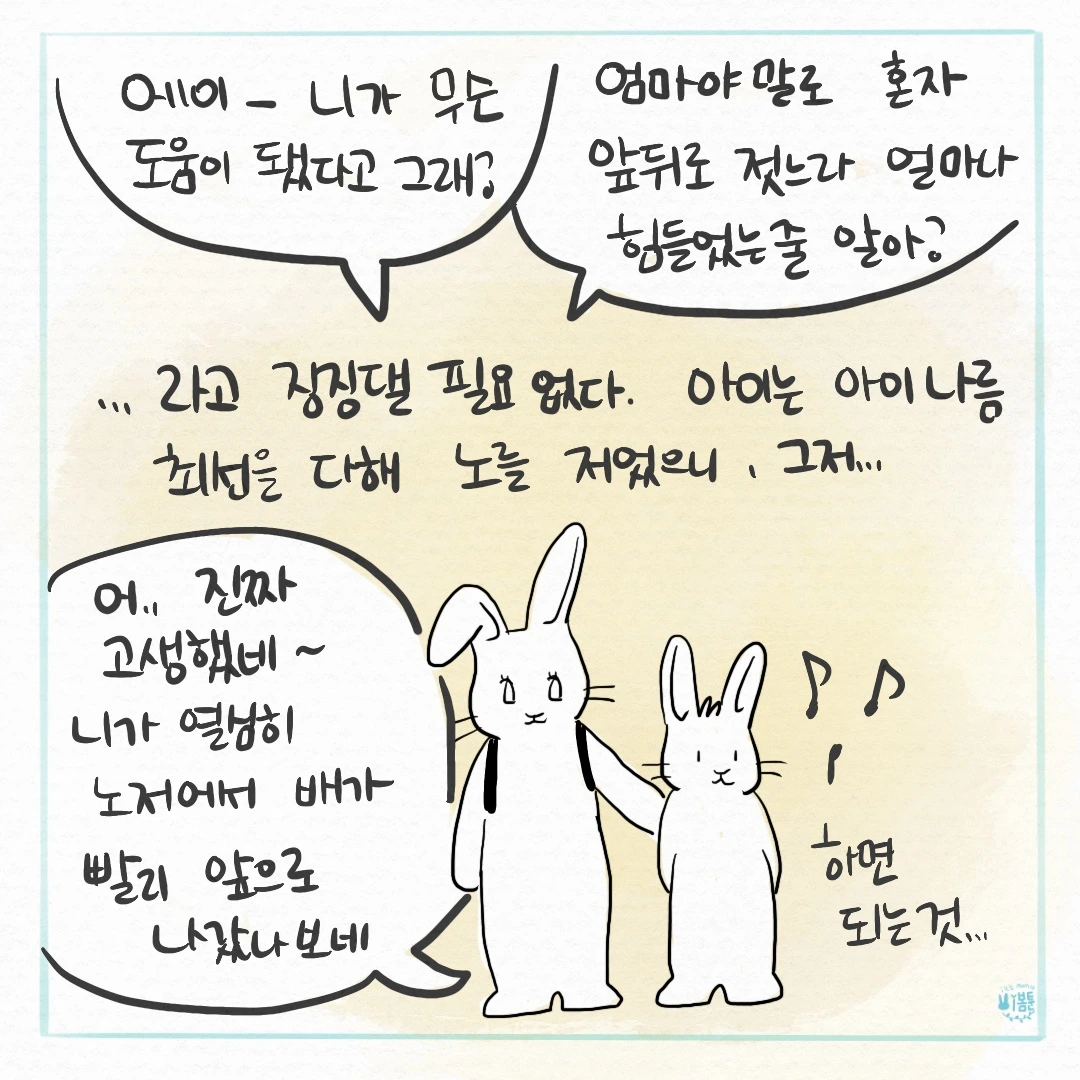 에이 - 니가 무슨
도움이 됐다고 그래?
엄마야말로 혼자
앞뒤로 젓느라 얼마나
힘들었는줄 알아?
... 라고 징징댈 필요 없다. 아이는 아이 나름
최선을 다해 노를 저었으니, 그저...
어.. 진짜
고생했네~
니가 열심히
노저어서 배가
빨리 앞으로
나갔나보네
하면
되는것...
봄툰